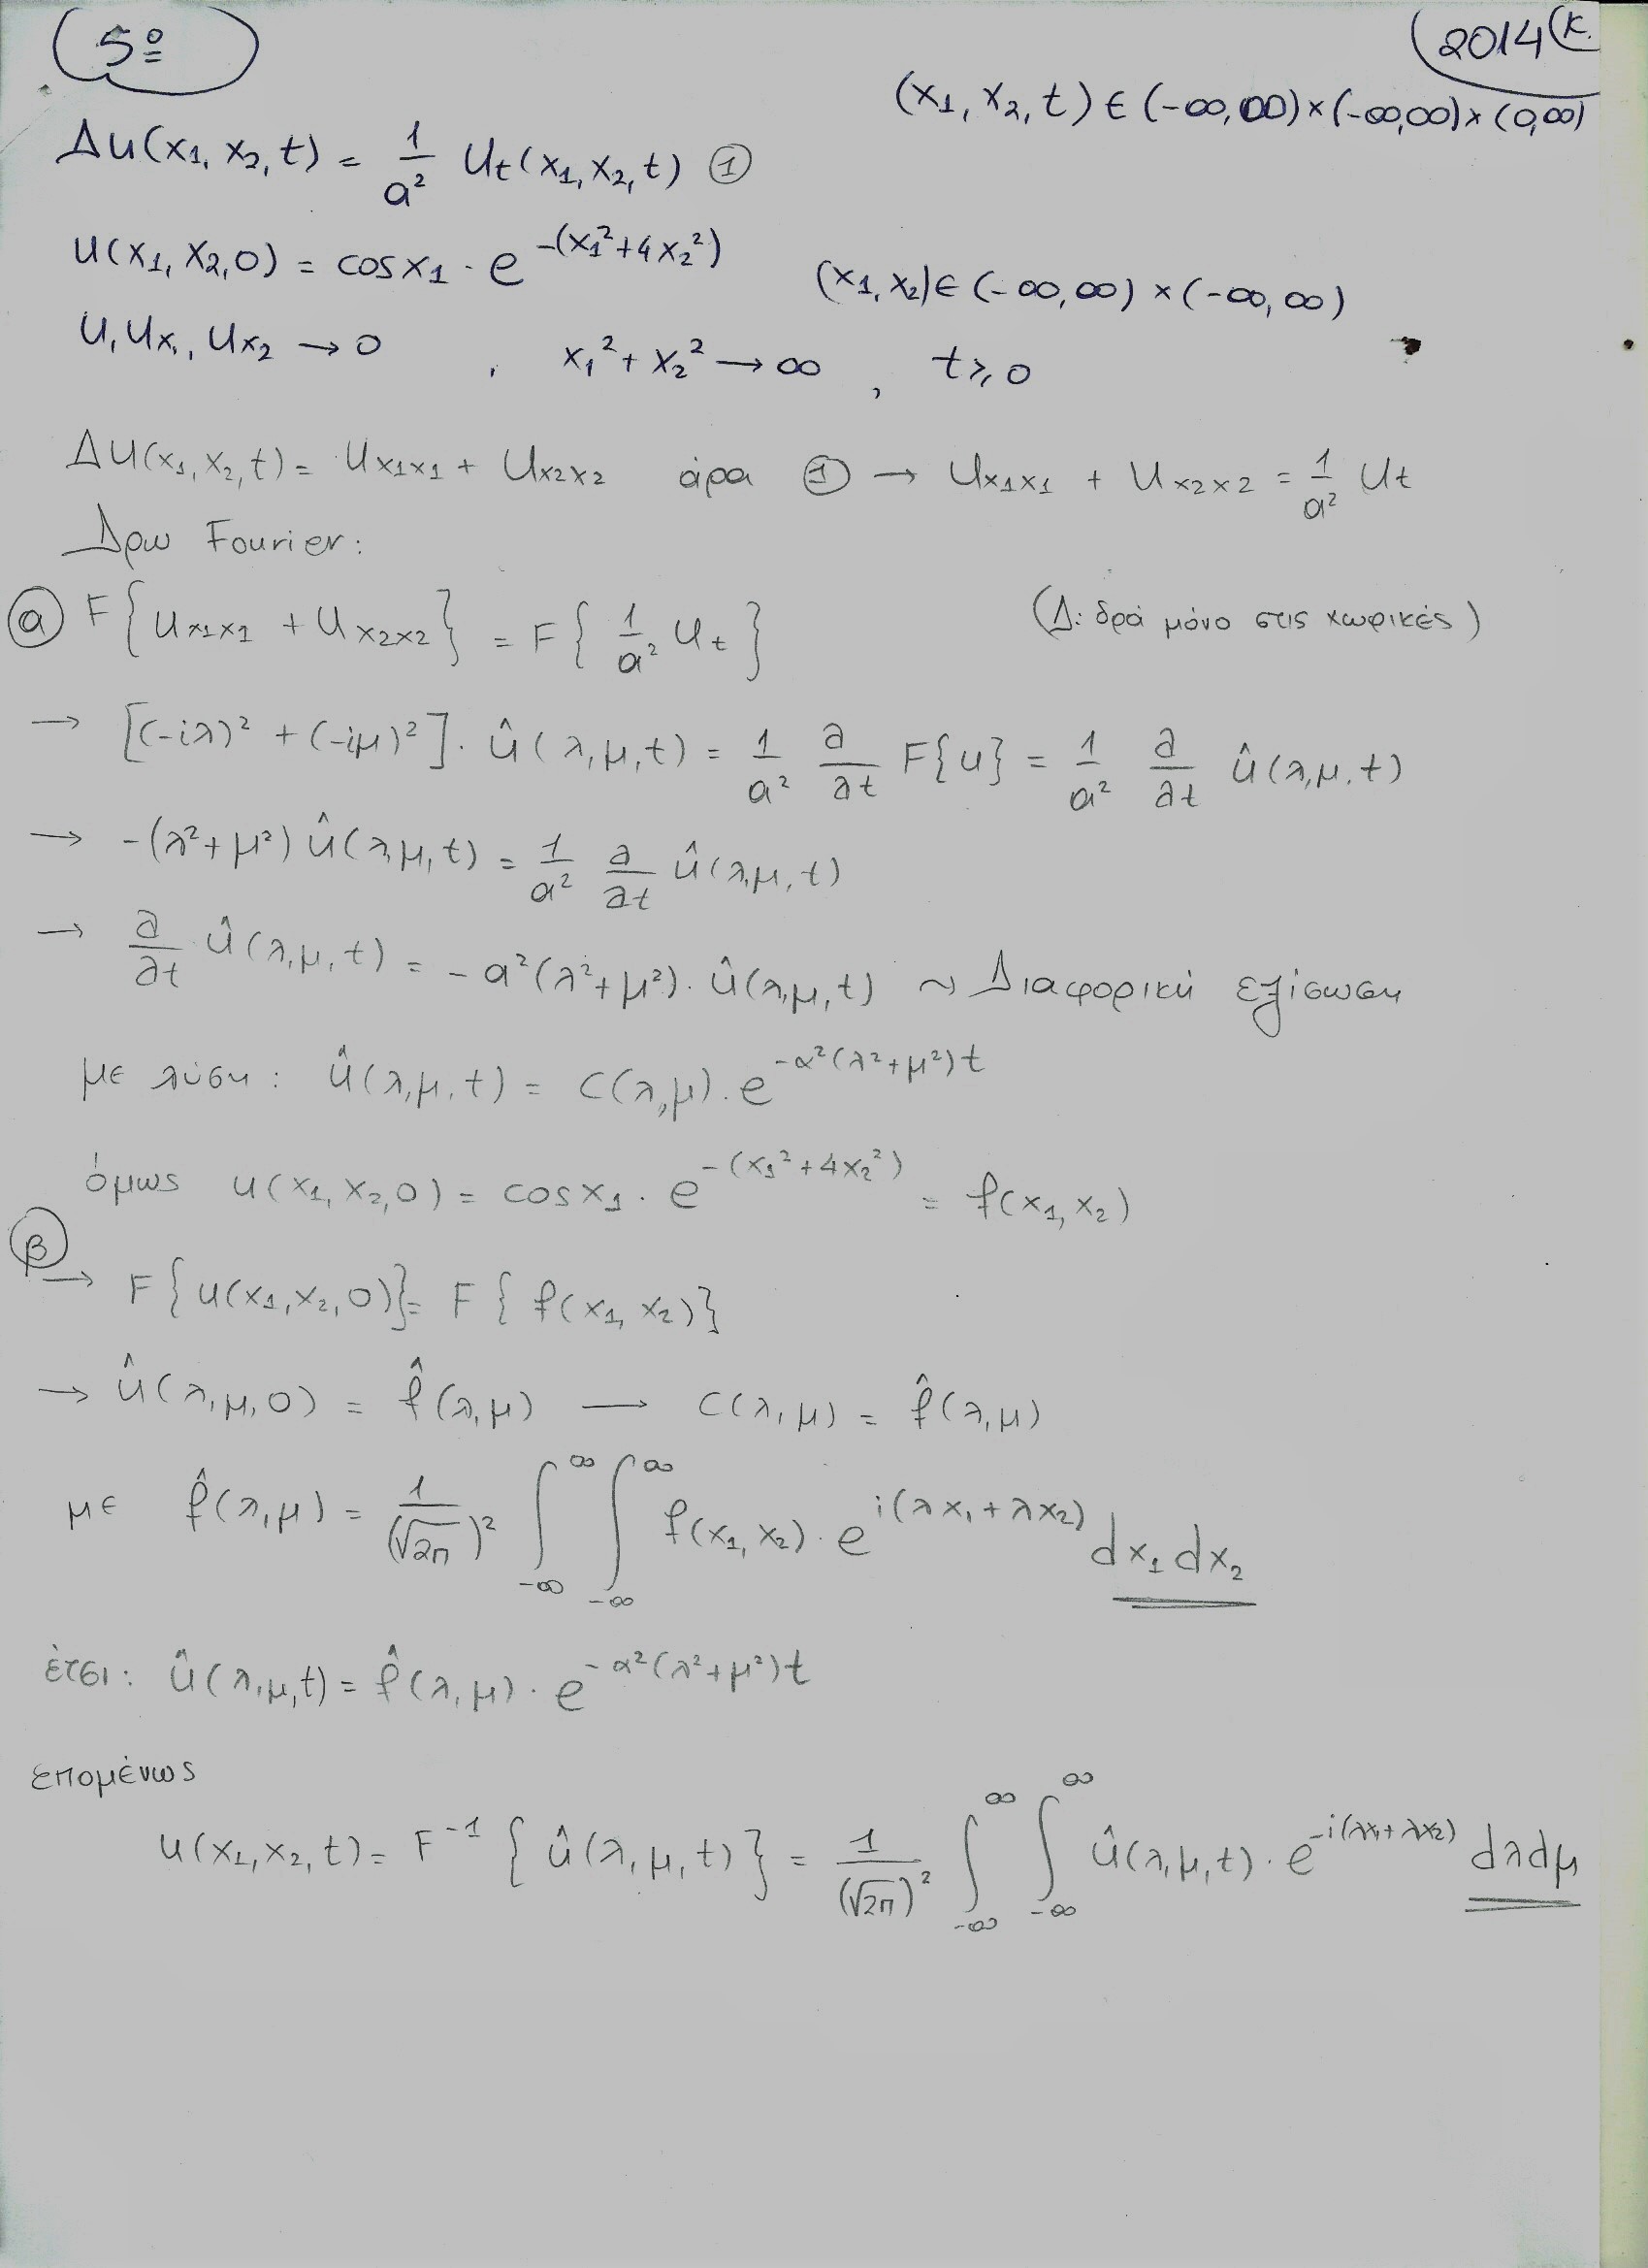 5º
2014 (κ.
(x₁, x₂, t) ∈ (-∞, ∞) × (-∞,∞) × (0,∞)
Δu(x₁, x₂, t) = 1/a² Ut(x₁, x₂, t) ①
u(x₁, x₂, 0) = cosx₁ · e^{-(x₁²+4x₂²)}
(x₁, x₂) ∈ (-∞,∞) × (-∞,∞)
U, Ux₁, Ux₂ → 0 , x₁² + x₂² → ∞ , t ≥ 0
ΔU(x₁, x₂, t) = Ux₁x₁ + Ux₂x₂ άρα ① → Ux₁x₁ + Ux₂x₂ = 1/a² Ut
Δρω Fourier:
ⓐ F{Ux₁x₁ + Ux₂x₂} = F{1/a² Ut} (Δ: δρά μόνο στις χωρικές)
→ [(-iλ)² + (-iμ)²] · û(λ, μ, t) = 1/a² ∂/∂t F{u} = 1/a² ∂/∂t û(λ,μ,t)
→ -(λ²+μ²) û(λ,μ,t) = 1/a² ∂/∂t û(λ,μ,t)
→ ∂/∂t û(λ,μ,t) = -a²(λ²+μ²) · û(λ,μ,t) ~ Διαφορική εξίσωση
με λύση: û(λ,μ,t) = C(λ,μ) · e^{-α²(λ²+μ²)t}
όμως u(x₁, x₂, 0) = cosx₁ · e^{-(x₁²+4x₂²)} = f(x₁, x₂)
β
→ F{u(x₁,x₂,0)} = F{f(x₁, x₂)}
→ û(λ,μ,0) = f̂(λ,μ) — C(λ,μ) = f̂(λ,μ)
με f̂(λ,μ) = 1/(√2π)² ∫_{-∞}^{∞} ∫_{-∞}^{∞} f(x₁, x₂) · e^{i(λx₁+λx₂)} dx₁dx₂
έτσι: û(λ,μ,t) = f̂(λ,μ) · e^{-α²(λ²+μ²)t}
επομένως
u(x₁,x₂,t) = F⁻¹{û(λ,μ,t)} = 1/(√2π)² ∫_{-∞}^{∞} ∫_{-∞}^{∞} û(λ,μ,t) · e^{-i(λx₁+λx₂)} dλdμ